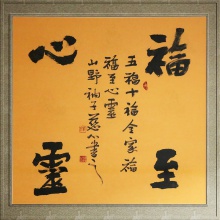 福至
心靈
五福十福全家福
福至心靈
山野衲子慈心書